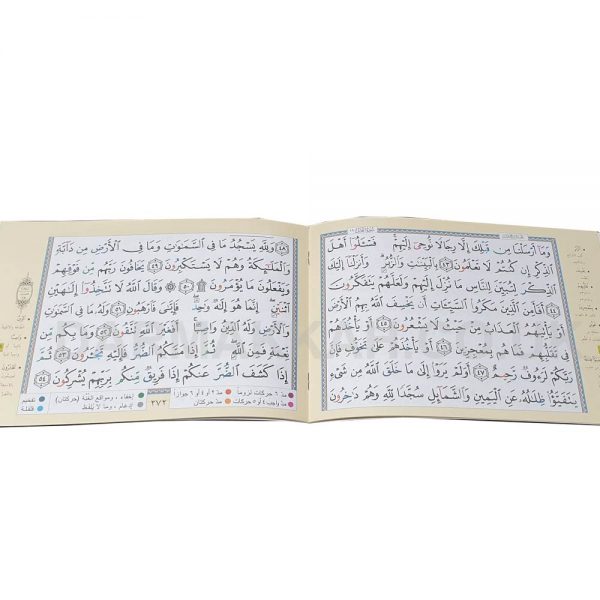 وَمَآ أَرْسَلْنَا مِن قَبْلِكَ إِلَّا رِجَالًا نُّوحِىٓ إِلَيْهِمْ فَسْـَٔلُوٓا۟ أَهْلَ
ٱلذِّكْرِ إِن كُنتُمْ لَا تَعْلَمُونَ ٤٣ بِٱلْبَيِّنَٰتِ وَٱلزُّبُرِ وَأَنزَلْنَآ إِلَيْكَ
ٱلذِّكْرَ لِتُبَيِّنَ لِلنَّاسِ مَا نُزِّلَ إِلَيْهِمْ وَلَعَلَّهُمْ يَتَفَكَّرُونَ
٤٤ أَفَأَمِنَ ٱلَّذِينَ مَكَرُوا۟ ٱلسَّيِّـَٔاتِ أَن يَخْسِفَ ٱللَّهُ بِهِمُ ٱلْأَرْضَ
أَوْ يَأْتِيَهُمُ ٱلْعَذَابُ مِنْ حَيْثُ لَا يَشْعُرُونَ ٤٥ أَوْ يَأْخُذَهُمْ
فِى تَقَلُّبِهِمْ فَمَا هُم بِمُعْجِزِينَ ٤٦ أَوْ يَأْخُذَهُمْ عَلَىٰ تَخَوُّفٍ فَإِنَّ
رَبَّكُمْ لَرَءُوفٌ رَّحِيمٌ ٤٧ أَوَلَمْ يَرَوْا۟ إِلَىٰ مَا خَلَقَ ٱللَّهُ مِن شَىْءٍ
يَتَفَيَّؤُا۟ ظِلَٰلُهُۥ عَنِ ٱلْيَمِينِ وَٱلشَّمَآئِلِ سُجَّدًا لِّلَّهِ وَهُمْ دَٰخِرُونَ
٤٨ وَلِلَّهِ يَسْجُدُ مَا فِى ٱلسَّمَٰوَٰتِ وَمَا فِى ٱلْأَرْضِ مِن دَآبَّةٍ
وَٱلْمَلَٰٓئِكَةُ وَهُمْ لَا يَسْتَكْبِرُونَ ٤٩ يَخَافُونَ رَبَّهُم مِّن فَوْقِهِمْ
وَيَفْعَلُونَ مَا يُؤْمَرُونَ ۩ ٥٠ ۞ وَقَالَ ٱللَّهُ لَا تَتَّخِذُوٓا۟ إِلَٰهَيْنِ
ٱثْنَيْنِ إِنَّمَا هُوَ إِلَٰهٌ وَٰحِدٌ فَإِيَّٰىَ فَٱرْهَبُونِ ٥١ وَلَهُۥ مَا فِى ٱلسَّمَٰوَٰتِ
وَٱلْأَرْضِ وَلَهُ ٱلدِّينُ وَاصِبًا أَفَغَيْرَ ٱللَّهِ تَتَّقُونَ ٥٢ وَمَا بِكُم مِّن
نِّعْمَةٍ فَمِنَ ٱللَّهِ ثُمَّ إِذَا مَسَّكُمُ ٱلضُّرُّ فَإِلَيْهِ تَجْـَٔرُونَ ٥٣ ثُمَّ
إِذَا كَشَفَ ٱلضُّرَّ عَنكُمْ إِذَا فَرِيقٌ مِّنكُم بِرَبِّهِمْ يُشْرِكُونَ ٥٤
مد ٦ حركات لزوماً مد ٢ أو ٤ أو ٦ جوازاً ٢٧٢ إخفاء، ومواقع الغنّة (حركتان) تفخيم
مد واجب ٤ أو ٥ حركات مد حركتان إدغام، وما لا يُلفظ قلقلة